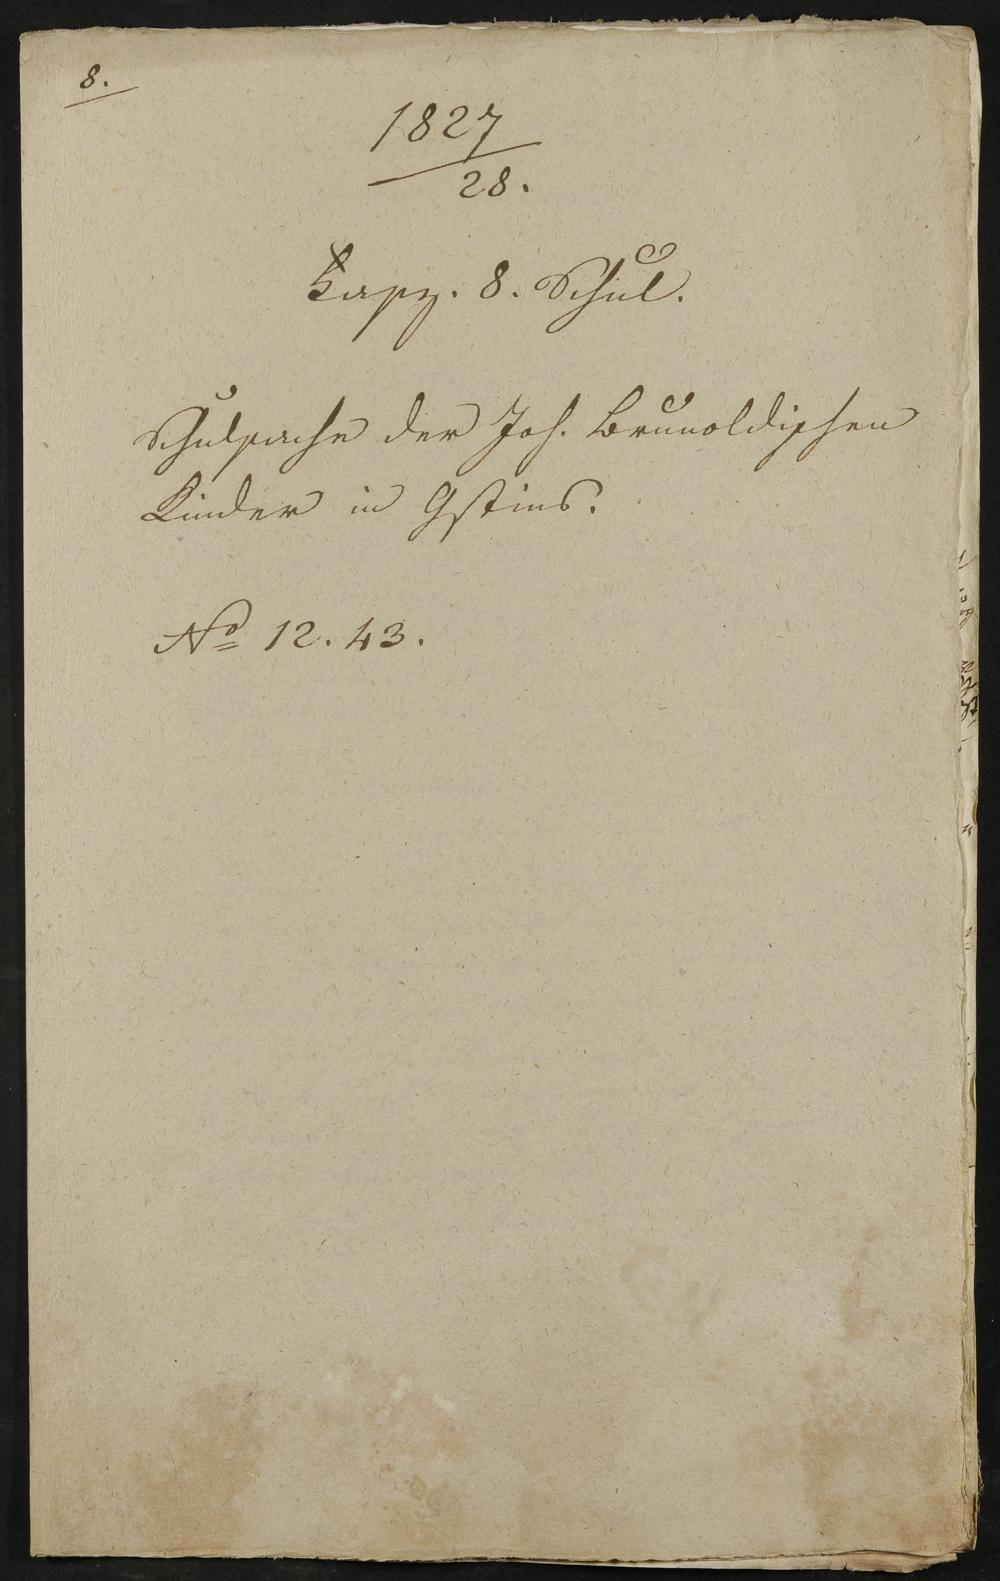 8.
1827
28.
Fasz. 8. Schul.
Schulsache der Joh. Brunoldischen
Kinder in Gstins.
No 12. 43.